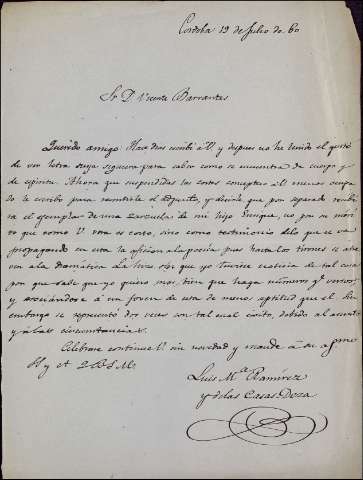 Cordoba 19 de Julio de 60
Sr D. Vicente Barrantes
Querido amigo: Hace dias escribí á V y despues no he tenido el gusto
de ver letra suya siquiera para saber como se encuentra de cuerpo y
de espiritu. Ahora que suspendidas las cortes contemplo á V menos ocupa
do le escribo para remitirle el adjunto, y decirle que por separado recibi
ra el ejemplar de una zarzuela de mi hijo Enrique, no por su mérito
que como V. vera es corto, sino como testimonio de lo que se va
propagando en esta la aficion á la poesia pues hasta los tiernos se atre
ven á la dramática. La hizo sin que yo tuviese noticia de tal cosa
por que sabe que yo quiero mas bien que haga números q.e versos,
y asociandose á un joven de esta de menos aptitud que el. Sin
embargo se representó dos veces con tal cual éxito, debido al asunto
y á las circunstancias.
Celebraré continue V. sin novedad y mande á su af.mo
S y A Q. B. S. M.
Luis M.a Ramirez
y de las Casas-Deza